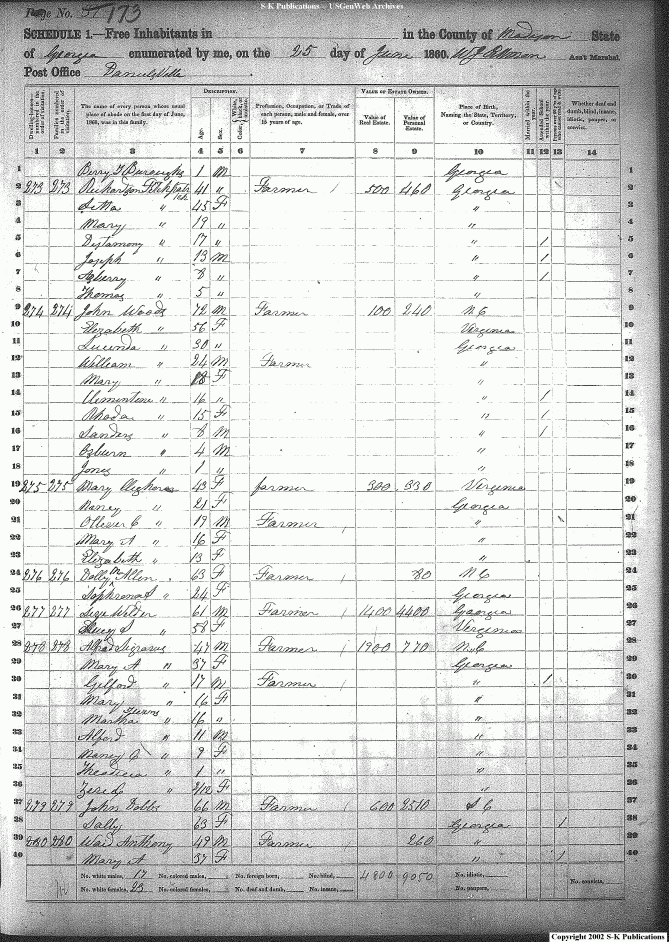 S-K Publications -- USGenWeb Archives
Page No. 173
SCHEDULE 1.—Free Inhabitants in in the County of Madison State
of Georgia enumerated by me, on the 25 day of June 1860. Ass't Marshal.
Post Office Danielsville
Dwelling-houses numbered in the order of visitation.
Families numbered in the order of visitation.
The name of every person whose usual place of abode on the first day of June, 1860, was in this family.
DESCRIPTION.
Age.
Sex.
Color, White, black, or mulatto.
Profession, Occupation, or Trade of each person, male and female, over 15 years of age.
VALUE OF ESTATE OWNED.
Value of Real Estate.
Value of Personal Estate.
Place of Birth, Naming the State, Territory, or Country.
Married within the year.
Attended School within the year.
Whether deaf and dumb, blind, insane, idiotic, pauper, or convict.
1 2 3 4 5 6 7 8 9 10 11 12 13 14
1 Berry T Burroughs 1 M Georgia 1
2 273 273 Richardson Fitzpatrick 41 " Farmer / 500 460 Georgia 2
3 " 45 F " 3
4 Mary " 19 " " 4
5 " 17 " " / 5
6 Joseph " 13 M " / 6
7 " 8 " " / 7
8 Thomas " 5 " " 8
9 274 274 John Woods 72 M Farmer 100 240 N C 9
10 Elizabeth " 56 F Virginia 10
11 Lucinda " 30 " Georgia 11
12 William " 24 M Farmer " 12
13 Mary " 18 F " 13
14 Clementine " 16 " " / 14
15 Rhoda " 15 F " / 15
16 Sanders " 8 M " / 16
17 Ozburn " 4 M " 17
18 Jones " 1 " " 18
19 275 275 Mary 43 F farmer 300 330 Virginia 19
20 Nancy " 21 F Georgia 20
21 Olliver C " 19 M Farmer / " 21
22 Mary A " 16 F " 22
23 Elizabeth " 13 F " 23
24 276 276 Dolly M Allen 63 F Farmer / 80 N C 24
25 Sophrona S " 24 F Georgia 25
26 277 277 61 M Farmer / 1400 4400 Georgia 26
27 Lucy S " 58 F Virginia 27
28 278 278 Alfrad Segraves 47 M Farmer / 1900 770 N C 28
29 Mary A " 37 F Georgia 29
30 Gilford " 17 M Farmer / " / 30
31 Mary " 16 F " 31
32 Martha Twins " 16 " " 32
33 Alford " 11 M " 33
34 Nancy J " 9 F " 34
35 " 1 " " 35
36 " 2/12 F " 36
37 279 279 John Dobbs 66 M Farmer / 600 2510 S C 37
38 Sally " 63 F Georgia / 38
39 280 280 Ward Anthony 49 M Farmer / 260 " 39
40 Mary A " 37 F " / 40
No. white males, 17 No. colored males, No. foreign born, No. blind, 4800 9050 No. idiotic, No. convicts,
No. white females, 23 No. colored females, No. deaf and dumb, No. insane, No. paupers,
Copyright 2002 S-K Publications